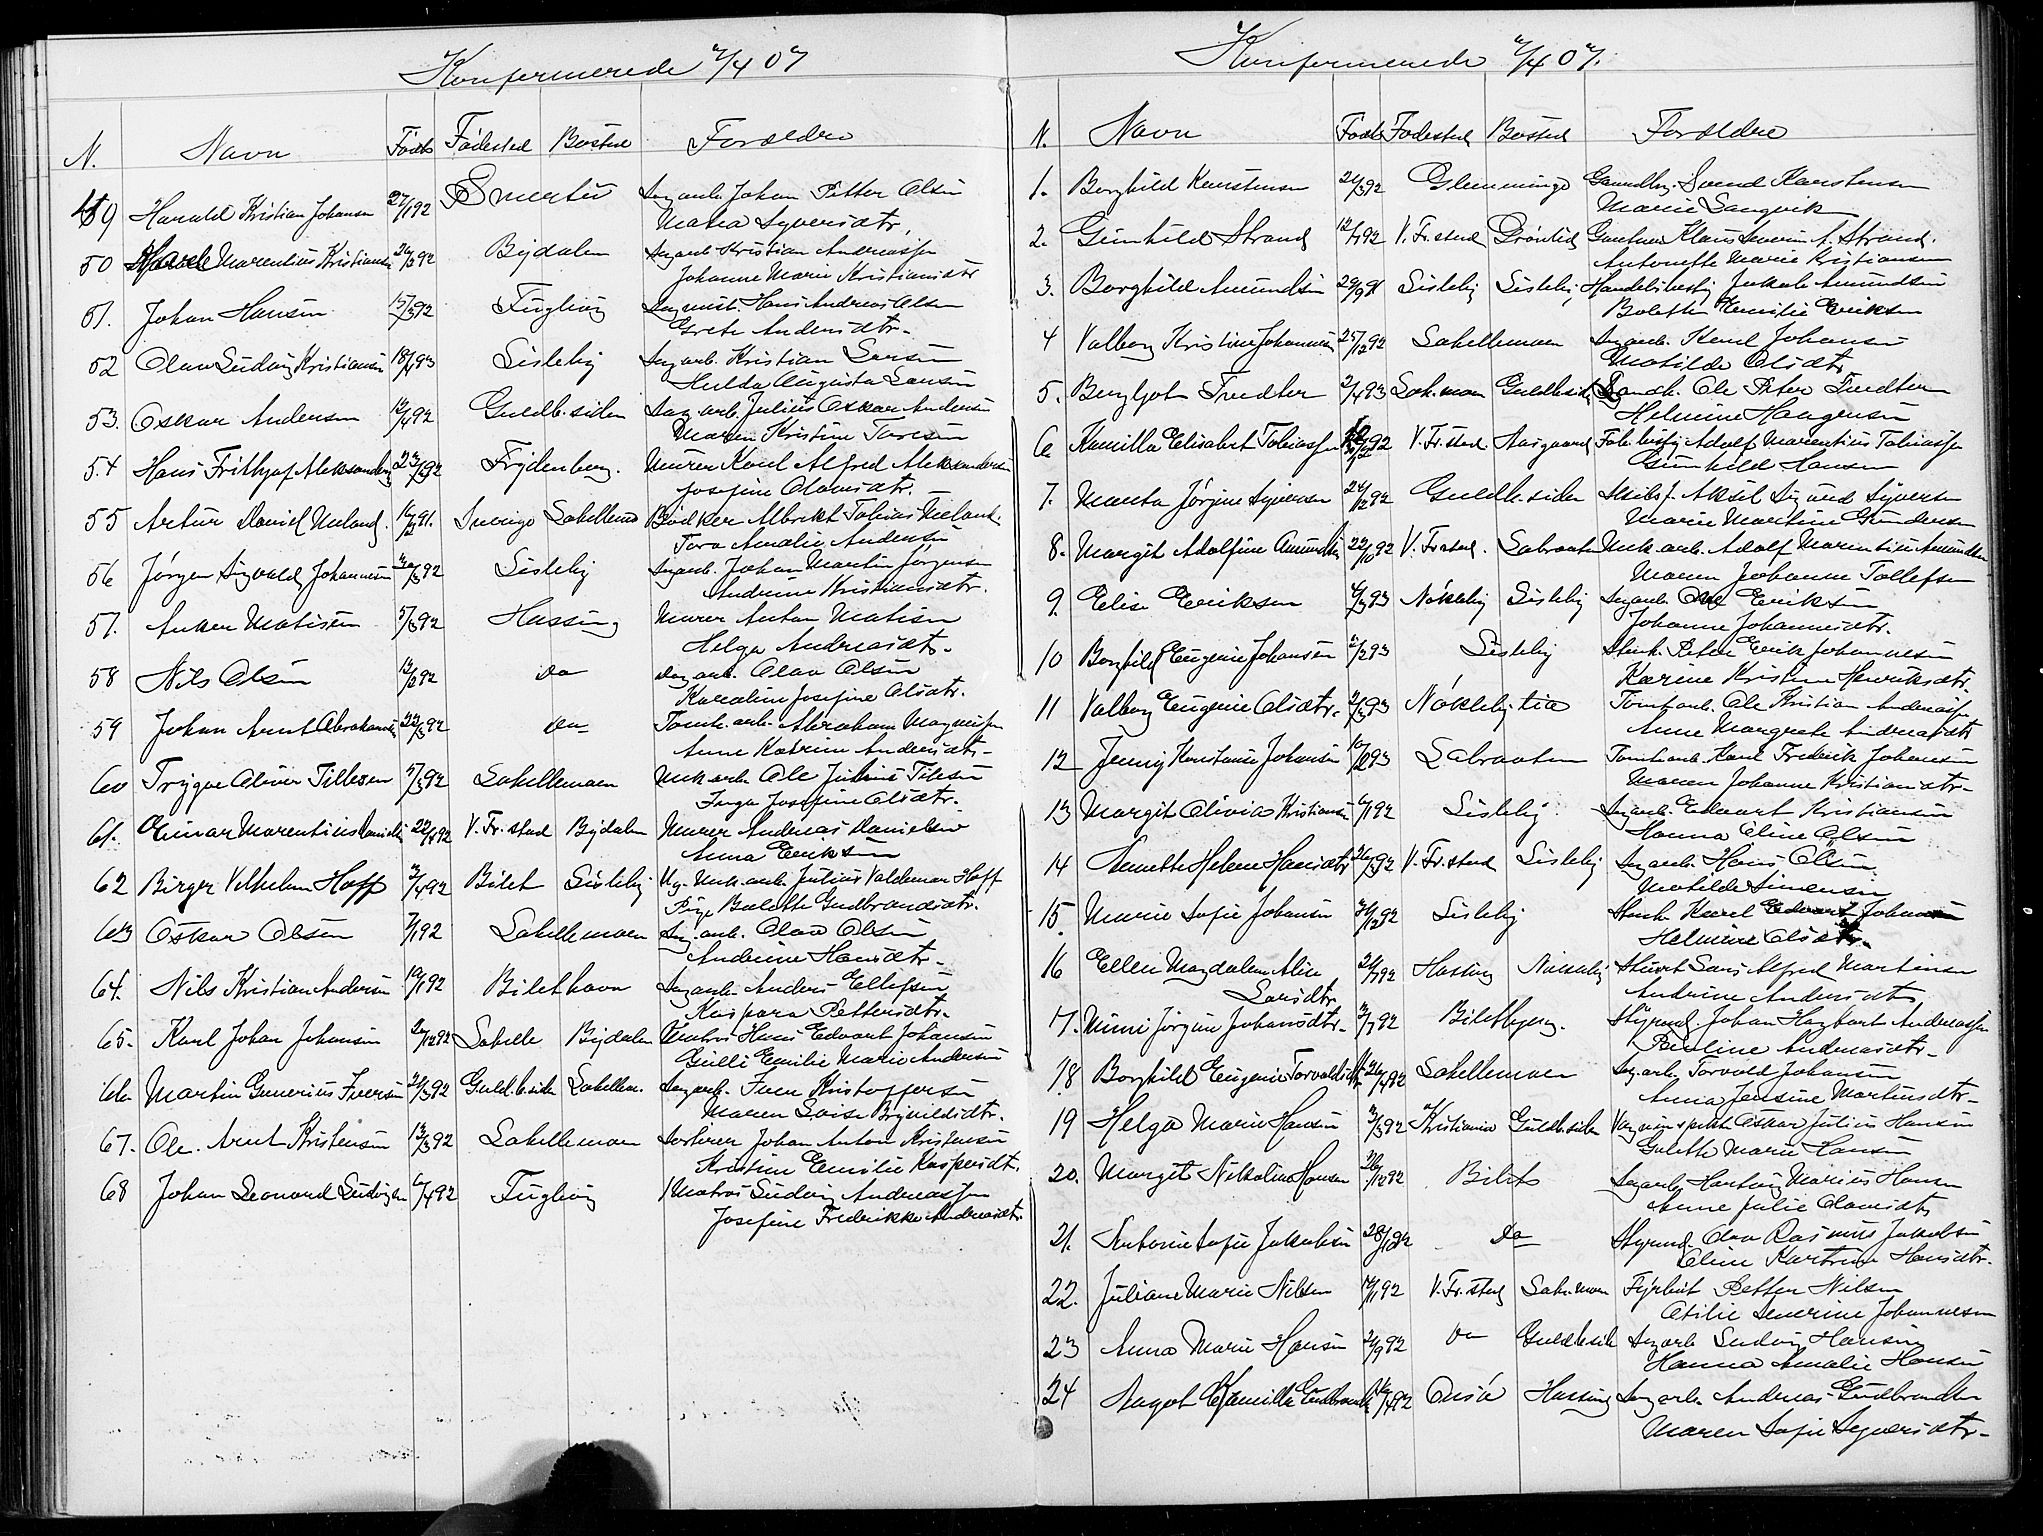 Konfirmerede 7/4 07
N. Navn Födt Födested Bosted Forældre
49 Harald Kristian Johansen 27/1 92 Smertu Sagarb. Johan Petter Olsen
Maria Syversdtr.
50 Marentius Kristiansen 26/3 92 Bydalen Sagarb. Kristian Andreassen
Johanne Marie Kristiansdtr
51. Johan Hansen 15/5 92 Fuglevig Sagmest. Hans Andreas Olsen
Grete Andersdtr.
52 Olav Ludvig Kristiansen 18/1 93 Lisleby Sagarb. Kristian Larsen
Hulda Augusta Larsen
53. Oskar Andersen 12/4 92 Guldb.siden Sagarb. Julius Oskar Andersen
Maren Kristine Larsen
54 Hans Frithjof Aleksandersen 23/3 92 Frydenberg. Murer Karl Alfred Aleksandersen
Josefine Olavsdtr.
55 Artur Daniel Ueland. 16/2 91. Sverige Lahellemo Bödker Albrekt Tobias Ueland.
Tora Amalie Andersen
56 Jørgen Sigvald Johannesen 30/3 92 Lisleby Sagarb. Johan Martin Jørgensen
Andrine Kristiansdtr.
57. Anker Matisen 5/5 92 Hassing Murer Anton Matisen
Helga Andreasdtr.
58 Nils Olsen 12/2 92 do Sagarb. Olav Olsen
Karoline Josefine Olsdtr.
59 Johan Arnt Abrahamsen 22/3 92 do Tomt.arb. Abraham Magnussen
Anne Katrine Andersdtr.
60 Trygve Oliver Tillesen 5/3 92 Lahellemoen Mek.arb. Ole Julius Tillesen
Inga Josefine Olsdtr.
61. Einar Marentius Danielsen 22/4 92 V. Fr.stad Bydalen Murer Andreas Danielsen
Anna Eriksen
62 Birger Vilhelm Hoff 3/4 92 Bilet Lisleby Ug. Mek.arb. Julius Valdemar Hoff
Pige Bolette Gudbrandsdtr.
63 Oskar Olsen 7/1 92 Lahellemoen Sag.arb. Olav Olsen
Andrine Hansdtr.
64. Nils Kristian Andersen 19/1 92 Bilethavn Sagarb. Anders Ellefsen
Kaspara Pettersdtr.
65. Karl Johan Johansen 2/12 92 Lahelle Bydalen Matros Hans Edvart Johansen
Gulli Emilie Marie Andersen
66 Martin Gunerius Iversen 20/3 92 Guldb.side Lahellem. Sagarb. Iver Kristoffersen
Maren Lovise Brynildsdtr.
67. Ole Arnt Kristensen 13/3 92 Lahellemoen Sorterer Johan Anton Kristensen
Kristine Emilie Kaspersdtr.
68 Johan Leonard Ludvigsen 6/4 92 Fuglevig Matros Ludvig Andreassen
Josefine Fredrikke Andreasdtr.
Konfirmerede 7/4 07.
N. Navn Födt Födested Bosted Forældre
1. Borghild Karstensen 21/3 92 Glemminge Gaardbr. Svend Karstensen
Marie Langvik
2. Gunhild Strand 12/7 92 V. Fr.stad Grönlid Gartner Klaus Severin A. Strand.
Antonette Marie Kristiansen
3. Borghild Amundsen 29/9 91 Lisleby Lisleby Handelsbesty. Jakob Amundsen
Bolette Emilie Eriksen
4 Valborg Kristine Johannesen 25/12 92 Lahellemoen Sagarb. Karl Johansen
Matilde Olsdtr
5. Bergljot Fredther 2/4 93 Lah.moen Guldb.side Landh. Ole Peter Fredther
Helmine Haagensen
6 Kamilla Elisabet Tobiassen 92 V. Fr.stad. Aasgaard Fab.besty. Adolf Marentius Tobiassen
Gunhild Hansen
7. Marta Jørgine Syversen 24/12 92 Guldb.siden Skibsf. Aksel Sigurd Syversen
Marie Martine Gundersen
8. Margit Adolfine Amundsen 22/10 92 V. Fr.stad. Labraaten Mek.arb. Adolf Marentius Amundsen
Maren Johanne Tollefsen
9. Elise Eriksen 4/3 93 Nökleby Lisleby Sagarb. Ole Eriksen
Johanne Johannesdtr.
10 Borghild Eugenie Johansen 2/2 93 Lisleby Sterk. Peter Erik Johannesen
Karine Kristine Henriksdtr.
11 Valborg Eugenie Olsdtr. 2/3 93 Nöklebylia Tomtarb. Ole Kristian Andreassen
Anne Margrete Andreasdtr
12 Jenny Konstanse Johansen 10/2 93 Labraaten Tomtarb. Karl Fredrik Johansen
Maren Johanne Kristiansdtr.
13 Margit Olivia Kristiansen 6/1 92 Lisleby. Sagarb. Edvart Kristiansen
Hanna Eline Olsen
14 Annette Helene Hansdtr 26/3 92 V. Fr.stad Lisleby Sagarb. Hans Olsen
Matilde Simensen
15. Marie Sofie Johansen 31/12 92 Lisleby Sterk. Karl Edvart Johansen
Helmine Olsdtr.
16 Ellen Magdalene Alise 21/7 92 Hassing Nökleby Stuert Lars Alfred Martinsen
Larsdtr. Andrine Andersdtr
17. Mimi Jørgine Johansdtr. 3/7 92 Biletbyen. Styrmd. Johan Hagbart Andreassen
Pauline Andreasdtr.
18. Borghild Eugenie Torvaldsdtr 26/4 92 Lahellemoen Sagarb. Torvald Johansen
Anna Jensine Martinsdtr.
19 Helga Marie Hansen 3/5 92 Kristiania Guldb.siden Vagninspekt. Oskar Julius Hansen
Galette Marie Hansen
20. Margit Nikoline Hansen 26/12 92 Bilet Sagarb. Hartvig Marius Hansen
Anne Julie Olavsdtr
21. Antonie Sofie Jakobsen 28/12 92 do Styrmd. Olav Rasmus Jakobsen
Eline Katrine Hansdtr.
22. Juliane Marie Nilsen 14/11 92 V. Fr.stad Lah.moen Fyrböt Petter Nilsen
Otilie Severine Johannesen
23 Anna Marie Hansen 2/9 92 do Guldb.side Sagarb. Ludvig Hansen
Hanna Amalie Hansen
24 Aagot Kamilla Gudbrandsen 92 Onsö Hassing Sagarb. Andreas Gudbrandsen
Maren Sofie Syversdtr.